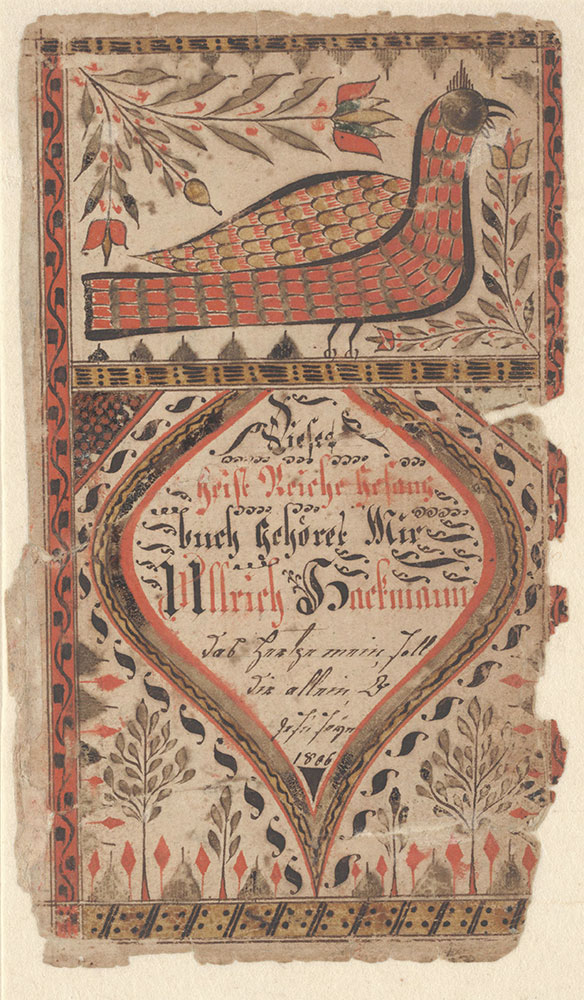 Dieses
Geist Reiche Gesang
buch Gehöret Mir
Ullrich Hackmann
das Hertze mein, soll
dir allein, O
Jesu seyn
1806